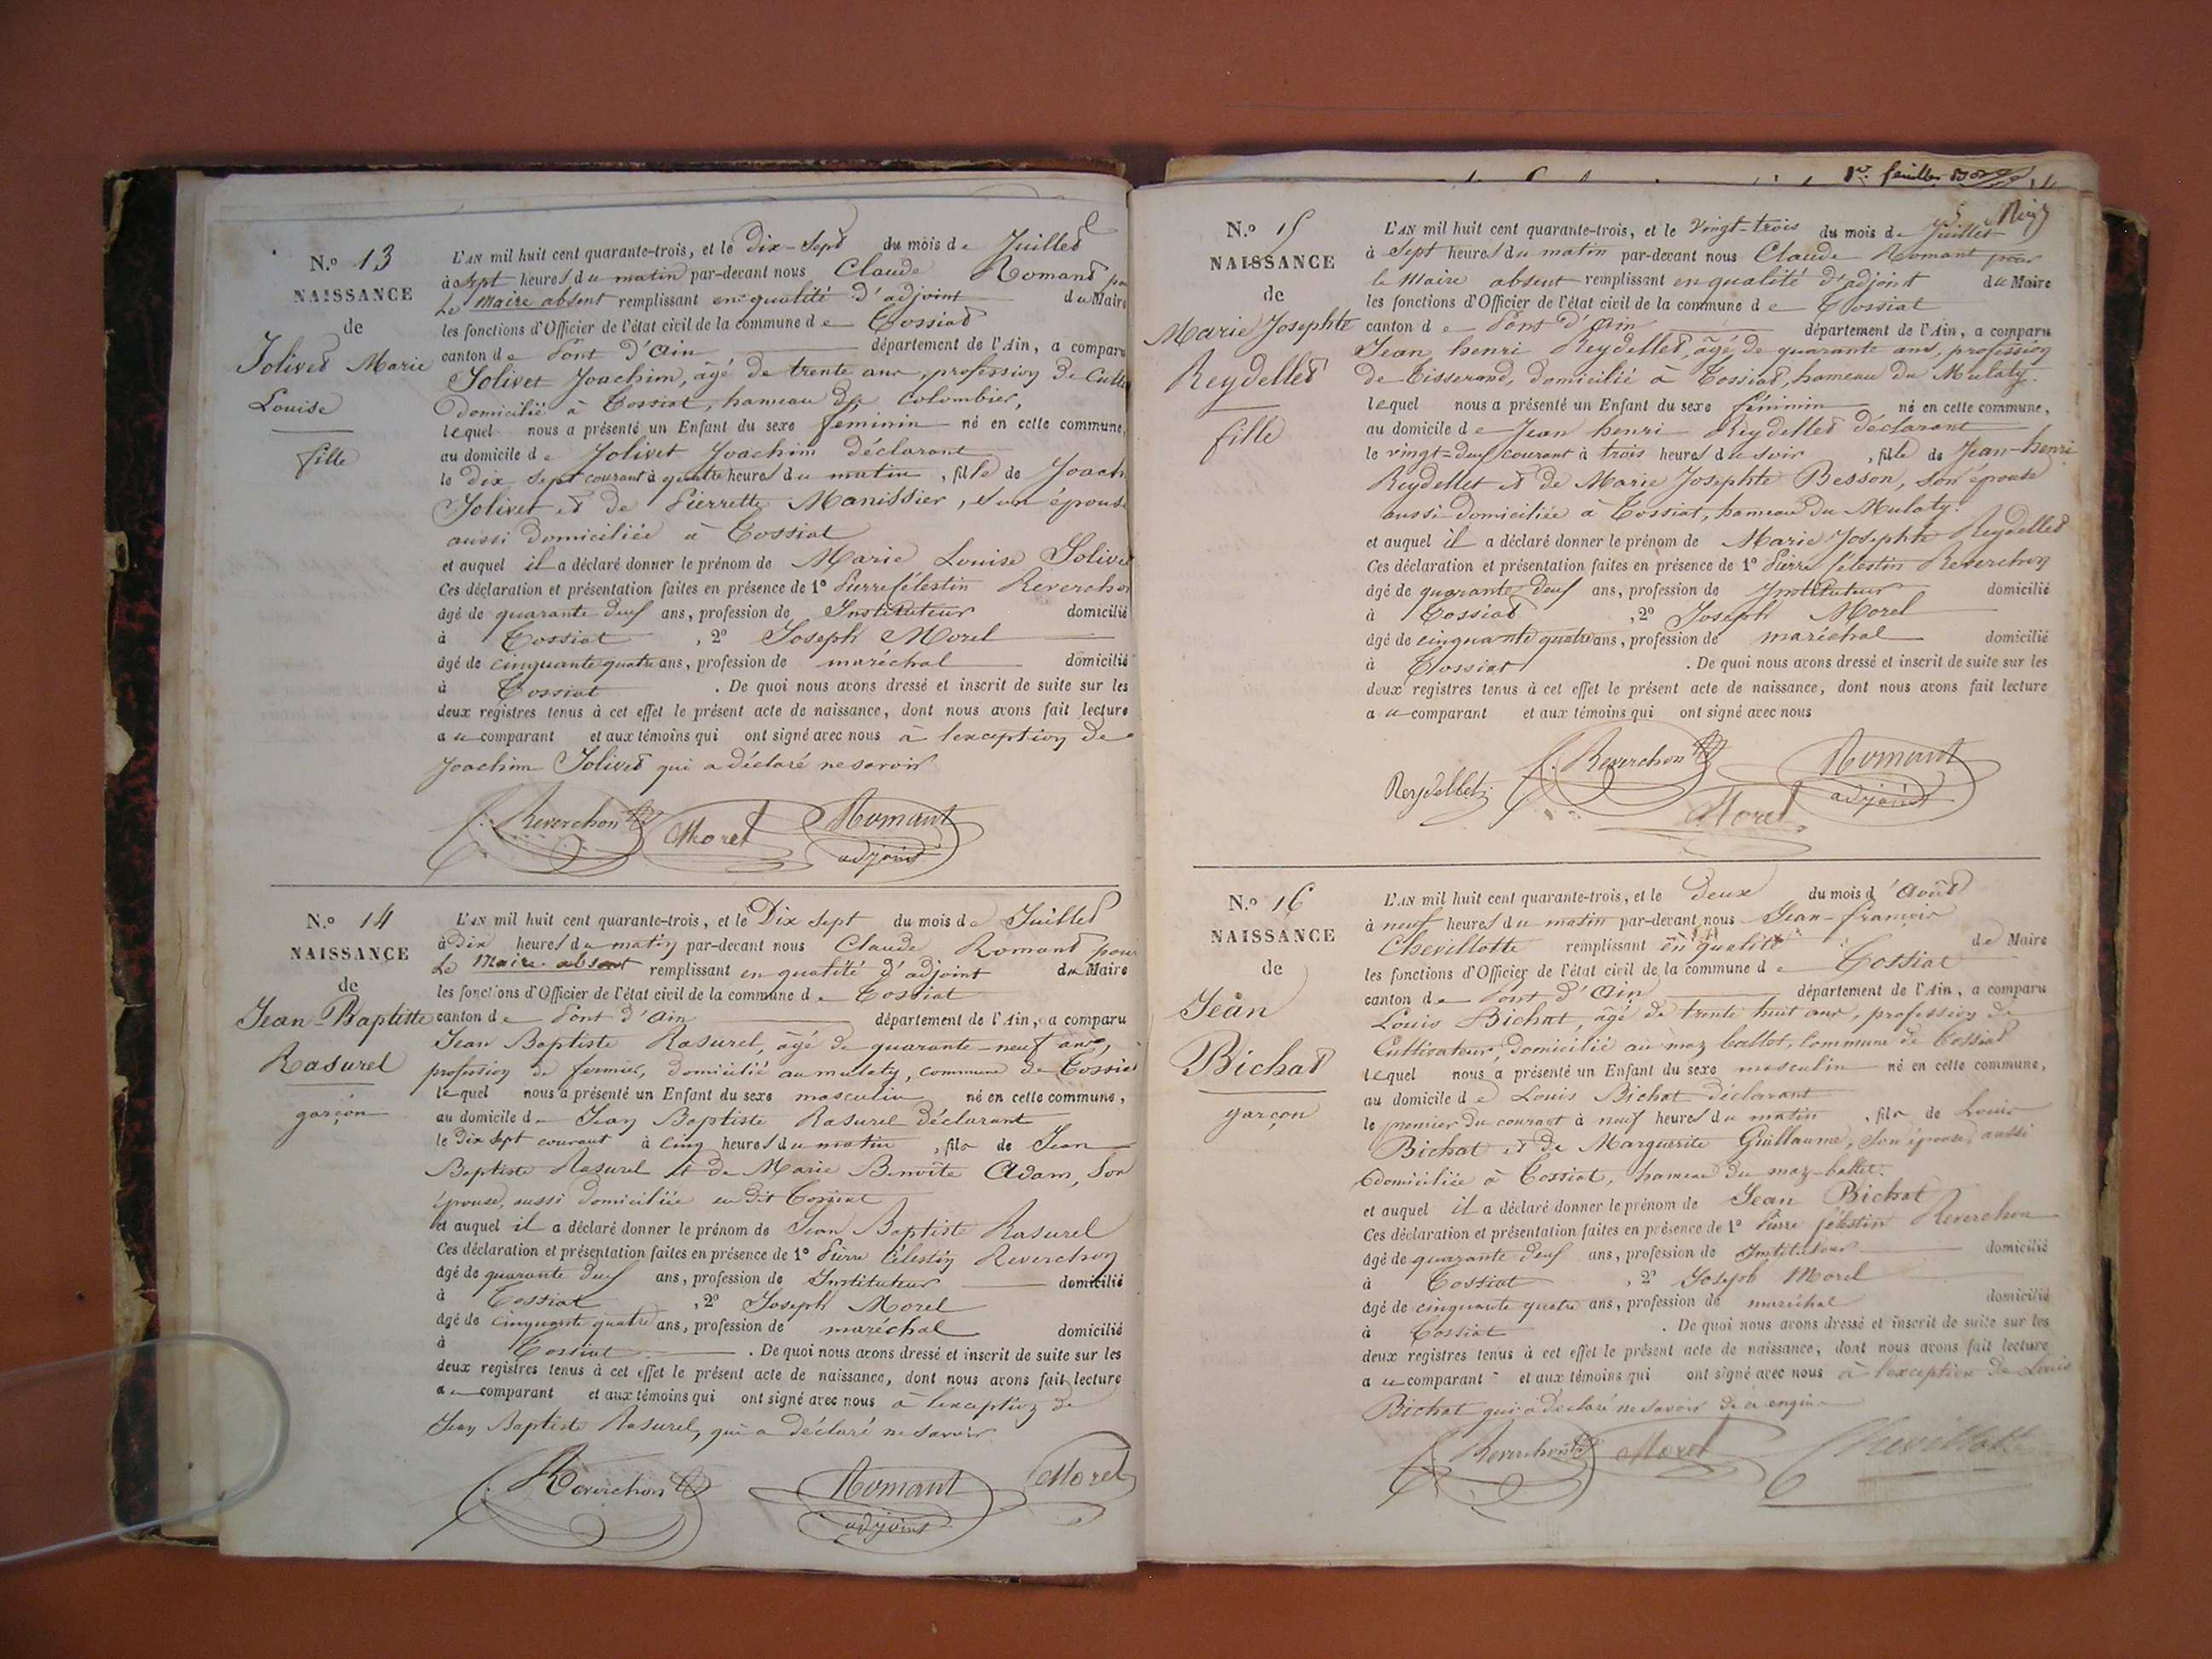 N.º 13
NAISSANCE
de
Jolivet Marie
Louise
fille
L'AN mil huit cent quarante-trois, et le Dix-Sept du mois de Juillet
à sept heures du matin par-devant nous Claude Romant
le Maire absent remplissant en qualité d'adjoint du Maire
les fonctions d'Officier de l'état civil de la commune de Tossiat
canton de Pont d'Ain département de l'Ain, a comparu
Jolivet Joachim, âgé de trente ans, profession de
domicilié à Tossiat, hameau du Colombier,
lequel nous a présenté un Enfant du sexe féminin né en cette commune,
au domicile de Jolivet Joachim déclarant
le dix sept courant à quatre heures du matin, fille de Joach
Jolivet et de Pierrette Manissier, son épouse
aussi domiciliée à Tossiat
et auquel il a déclaré donner le prénom de Marie Louise Jolivet
Ces déclaration et présentation faites en présence de 1º Pierre Célestin Reverchon
âgé de quarante deux ans, profession de Instituteur domicilié
à Tossiat, 2º Joseph Morel
âgé de cinquante quatre ans, profession de maréchal domicilié
à Tossiat. De quoi nous avons dressé et inscrit de suite sur les
deux registres tenus à cet effet le présent acte de naissance, dont nous avons fait lecture
au comparant et aux témoins qui ont signé avec nous à l'exception de
Joachim Jolivet qui a déclaré ne savoir
Reverchon Morel Romant
adjoint
N.º 14
NAISSANCE
de
Jean-Baptiste
Rasurel
garçon
L'AN mil huit cent quarante-trois, et le Dix Sept du mois de Juillet
à Dix heures du matin par-devant nous Claude Romant pour
le Maire absent remplissant en qualité d'adjoint du Maire
les fonctions d'Officier de l'état civil de la commune de Tossiat
canton de Pont d'Ain département de l'Ain, a comparu
Jean Baptiste Rasurel, âgé de quarante-neuf ans,
profession de fermier, domicilié au mulaty, commune de Tossiat
lequel nous a présenté un Enfant du sexe masculin né en cette commune,
au domicile de Jean Baptiste Rasurel déclarant
le Dix Sept courant à cinq heures du matin, fils de Jean
Baptiste Rasurel et de Marie Benoite Adam, son
épouse, aussi domiciliée au dit Tossiat
et auquel il a déclaré donner le prénom de Jean Baptiste Rasurel
Ces déclaration et présentation faites en présence de 1º Pierre Célestin Reverchon
âgé de quarante deux ans, profession de Instituteur domicilié
à Tossiat, 2º Joseph Morel
âgé de cinquante quatre ans, profession de maréchal domicilié
à Tossiat. De quoi nous avons dressé et inscrit de suite sur les
deux registres tenus à cet effet le présent acte de naissance, dont nous avons fait lecture
au comparant et aux témoins qui ont signé avec nous à l'exception de
Jean Baptiste Rasurel, qui a déclaré ne savoir
Reverchon Romant Morel
adjoint
N.º 15
NAISSANCE
de
Marie Josephte
Reydellet
fille
L'AN mil huit cent quarante-trois, et le Vingt-trois du mois de Juillet
à Sept heures du matin par-devant nous Claude Romant pour
le Maire absent remplissant en qualité d'adjoint du Maire
les fonctions d'Officier de l'état civil de la commune de Tossiat
canton de Pont d'Ain département de l'Ain, a comparu
Jean henri Reydellet, âgé de quarante ans, profession
de Tisserand, domicilié à Tossiat, hameau du Mulaty.
lequel nous a présenté un Enfant du sexe féminin né en cette commune,
au domicile de Jean henri Reydellet déclarant
le vingt-deux courant à trois heures du soir, fille de Jean-henri
Reydellet et de Marie Josephte Besson, son épouse
aussi domiciliée à Tossiat, hameau du Mulaty.
et auquel il a déclaré donner le prénom de Marie Josephte Reydellet
Ces déclaration et présentation faites en présence de 1º Pierre Célestin Reverchon
âgé de quarante deux ans, profession de Instituteur domicilié
à Tossiat, 2º Joseph Morel
âgé de cinquante quatre ans, profession de maréchal domicilié
à Tossiat. De quoi nous avons dressé et inscrit de suite sur les
deux registres tenus à cet effet le présent acte de naissance, dont nous avons fait lecture
au comparant et aux témoins qui ont signé avec nous
Reydellet Reverchon Romant
Morel adjoint
N.º 16
NAISSANCE
de
Jean
Bichat
garçon
L'AN mil huit cent quarante-trois, et le Deux du mois d'Août
à neuf heures du matin par-devant nous Jean-françois
Chevillotte remplissant en qualité de Maire
les fonctions d'Officier de l'état civil de la commune de Tossiat
canton de Pont d'Ain département de l'Ain, a comparu
Louis Bichat, âgé de trente huit ans, profession de
Cultivateur, domicilié au maz ballet, commune de Tossiat
lequel nous a présenté un Enfant du sexe masculin né en cette commune,
au domicile de Louis Bichat déclarant
le premier du courant à neuf heures du matin, fils de Louis
Bichat et de Marguerite Guillaume, son épouse, aussi
domiciliée à Tossiat, hameau du maz-ballet.
et auquel il a déclaré donner le prénom de Jean Bichat
Ces déclaration et présentation faites en présence de 1º Pierre Célestin Reverchon
âgé de quarante deux ans, profession de Instituteur domicilié
à Tossiat, 2º Joseph Morel
âgé de cinquante quatre ans, profession de maréchal domicilié
à Tossiat. De quoi nous avons dressé et inscrit de suite sur les
deux registres tenus à cet effet le présent acte de naissance, dont nous avons fait lecture
au comparant et aux témoins qui ont signé avec nous à l'exception de Louis
Bichat qui a déclaré ne savoir de ce enquis
Reverchon Morel Chevillotte